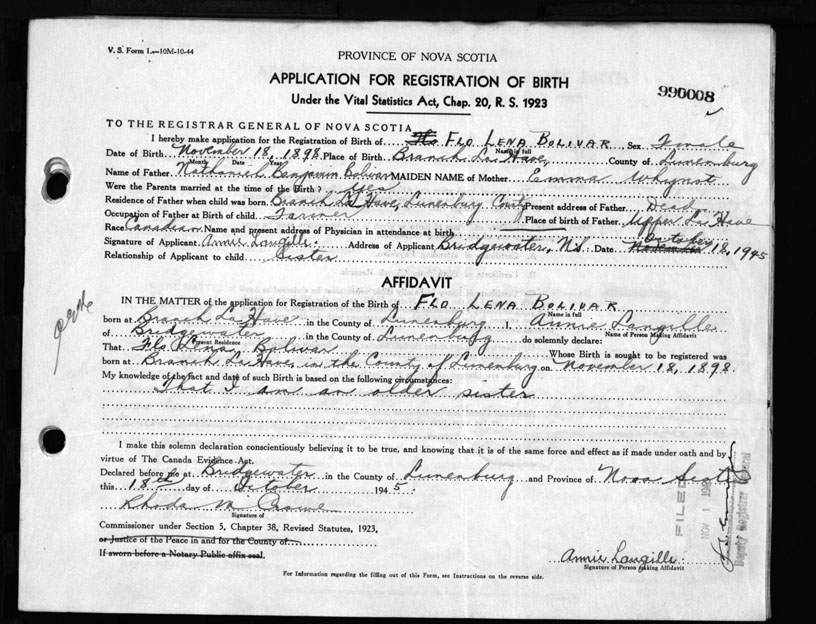 V. S. Form 1.—10M-10-44
PROVINCE OF NOVA SCOTIA
APPLICATION FOR REGISTRATION OF BIRTH
990008
Under the Vital Statistics Act, Chap. 20, R. S. 1923
TO THE REGISTRAR GENERAL OF NOVA SCOTIA
I hereby make application for the Registration of Birth of FLO LENA BOLIVAR Sex Female
Name in full
Date of Birth November 18, 1898 Place of Birth Branch La Have, County of Lunenburg
Month Date Year
Name of Father Nathaniel Benjamin Bolivar MAIDEN NAME of Mother Emma Whynot
Were the Parents married at the time of the Birth? Yes
Residence of Father when child was born Branch La Have, Lunenburg County Present address of Father Dead
Occupation of Father at Birth of child Farmer Place of birth of Father Upper La Have
Race Canadian Name and present address of Physician in attendance at birth
Signature of Applicant Annie Langille. Address of Applicant Bridgewater, N.S. Date November October 18, 1945
Relationship of Applicant to child Sister
AFFIDAVIT
IN THE MATTER of the application for Registration of the Birth of FLO LENA BOLIVAR
Name in full
born at Branch La Have in the County of Lunenburg I, Annie Langille
Name of Person Making Affidavit
of Bridgewater in the County of Lunenburg do solemnly declare:
Present Residence
That Flo Lena Bolivar Whose Birth is sought to be registered was
born at Branch La Have, in the County of Lunenburg on November 18, 1898.
My knowledge of the fact and date of such Birth is based on the following circumstances:
That I am an older sister
I make this solemn declaration conscientiously believing it to be true, and knowing that it is of the same force and effect as if made under oath and by
virtue of The Canada Evidence Act.
Declared before me at Bridgewater in the County of Lunenburg and Province of Nova Scotia
this 18th day of October 1945.
Rhoda M
Signature of
Commissioner under Section 5, Chapter 38, Revised Statutes, 1923,
or Justice of the Peace in and for the County of
If sworn before a Notary Public affix seal.
Annie Langille
Signature of Person Making Affidavit
For Information regarding the filling out of this Form, see Instructions on the reverse side.
FILED
NOV 1
Deputy Registrar General